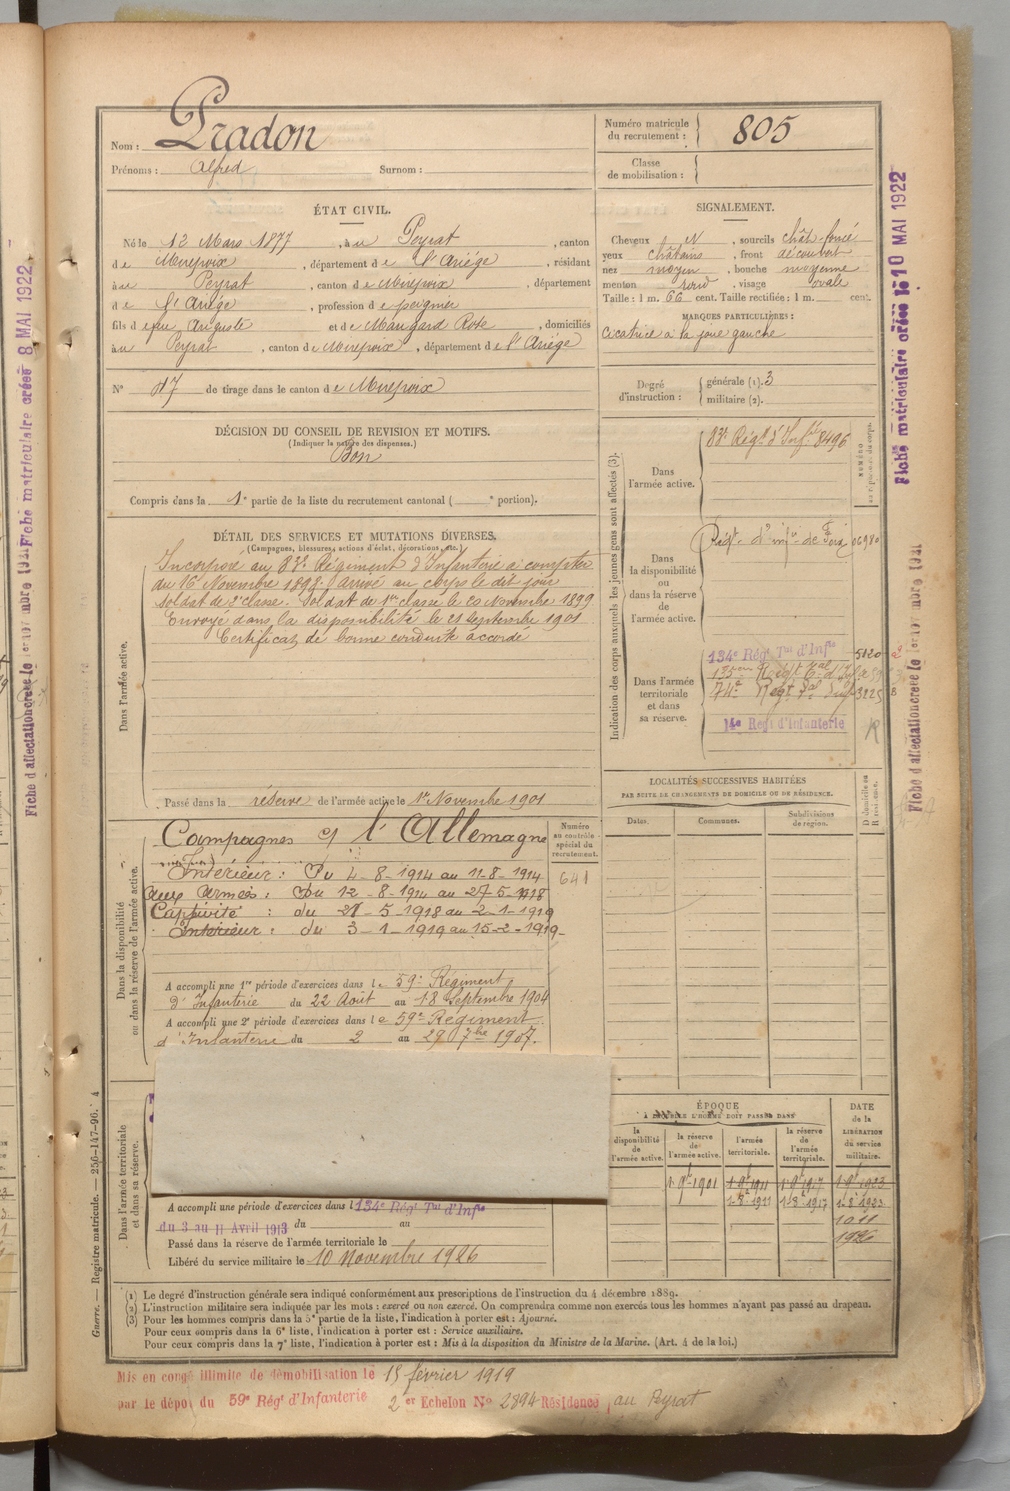 Nom : Pradon
Prénoms : Alfred Surnom :
Numéro matricule du recrutement : 805
Classe de mobilisation :
ÉTAT CIVIL.
Né le 12 Mars 1877, à u Peyrat, canton
de Mirepoix, département de l'Ariége, résidant
à u Peyrat, canton de Mirepoix, département
de l'Ariége, profession de peignier
fils de feu Auguste et de Maugard Rose, domiciliés
à u Peyrat, canton de Mirepoix, département de l'Ariége
N° 47 de tirage dans le canton de Mirepoix
SIGNALEMENT.
Cheveux N, sourcils chât. foncé
yeux châtains, front découvert
nez moyen, bouche moyenne
menton rond, visage ovale
Taille : 1 m. 66 cent. Taille rectifiée : 1 m. cent.
MARQUES PARTICULIÈRES :
Cicatrice à la joue gauche
Degré d'instruction : générale (1). 3
militaire (2).
DÉCISION DU CONSEIL DE REVISION ET MOTIFS.
(Indiquer la nature des dispenses.)
Bon
Compris dans la 1e partie de la liste du recrutement cantonal ( e portion).
DÉTAIL DES SERVICES ET MUTATIONS DIVERSES.
(Campagnes, blessures, actions d'éclat, décorations, etc.)
Dans l'armée active.
Incorporé au 83e Régiment d'Infanterie à compter
du 16 Novembre 1898. Arrivé au corps le dit jour
soldat de 2e classe. Soldat de 1re classe le 20 Novembre 1899
Envoyé dans la disponibilité le 21 Septembre 1901
Certificat de bonne conduite accordé
Passé dans la réserve de l'armée active le 1er Novembre 1901
Indication des corps auxquels les jeunes gens sont affectés (3).
NUMÉRO
Dans l'armée active.
83e Régt d'Infie 8496
Dans la disponibilité ou dans la réserve de l'armée active.
Régt d'infie de Foix 06980
Dans l'armée territoriale et dans sa réserve.
134e Rég Tal d'Infie 5120
74e Regt Tal d'Inf 3225
14e Regt d'Infanterie
LOCALITÉS SUCCESSIVES HABITÉES
PAR SUITE DE CHANGEMENTS DE DOMICILE OU DE RÉSIDENCE.
Dates. Communes. Subdivisions de région. D domicile ou R résidence.
Dans la disponibilité ou dans la réserve de l'armée active.
Campagnes c/ l'Allemagne
Intérieur : Du 4-8-1914 au 11-8-1914
Aux Armées : Du 12-8-1914 au 27-5-1918
Captivité : du 28-5-1918 au 2-1-1919
Intérieur : du 3-1-1919 au 15-2-1919
Numéro au contrôle spécial du recrutement.
641
A accompli une 1re période d'exercices dans le 59e Régiment
d'Infanterie du 22 Août au 18 Septembre 1904
A accompli une 2e période d'exercices dans le 59e Régiment
d'Infanterie du 2 au 29 7bre 1907.
Dans l'armée territoriale et dans sa réserve.
A accompli une période d'exercices dans l 134e Rég Tal d'Infie
du 3 au 11 Avril 1913 du au
Passé dans la réserve de l'armée territoriale le
Libéré du service militaire le 10 Novembre 1926
ÉPOQUE
À LAQUELLE L'HOMME DOIT PASSER DANS
la disponibilité de l'armée active. la réserve de l'armée active. l'armée territoriale. la réserve de l'armée territoriale.
DATE de la LIBÉRATION du service militaire.
1 9e 1901 1 9e 1911 1 9e 1917 1 9e 1923
1 8e 1911 1 8e 1917 1 8e 1923
10 11
1926
(1) Le degré d'instruction générale sera indiqué conformément aux prescriptions de l'instruction du 4 décembre 1889.
(2) L'instruction militaire sera indiquée par les mots : exercé ou non exercé. On comprendra comme non exercés tous les hommes n'ayant pas passé au drapeau.
(3) Pour les hommes compris dans la 5e partie de la liste, l'indication à porter est : Ajourné.
Pour ceux compris dans la 6e liste, l'indication à porter est : Service auxiliaire.
Pour ceux compris dans la 7e liste, l'indication à porter est : Mis à la disposition du Ministre de la Marine. (Art. 4 de la loi.)
Mis en congé illimité de démobilisation le 15 février 1919
par le dépôt du 59e Rég d'Infanterie 2er Echelon No 2894 Résidence au Peyrat
Guerre. — Registre matricule. — 256-147-96. 4
Fiche matriculaire créée le 10 MAI 1922
Fiche d'affectation créée le
Fiche matriculaire créée 8 MAI 1922
Fiche d'affectation créée le